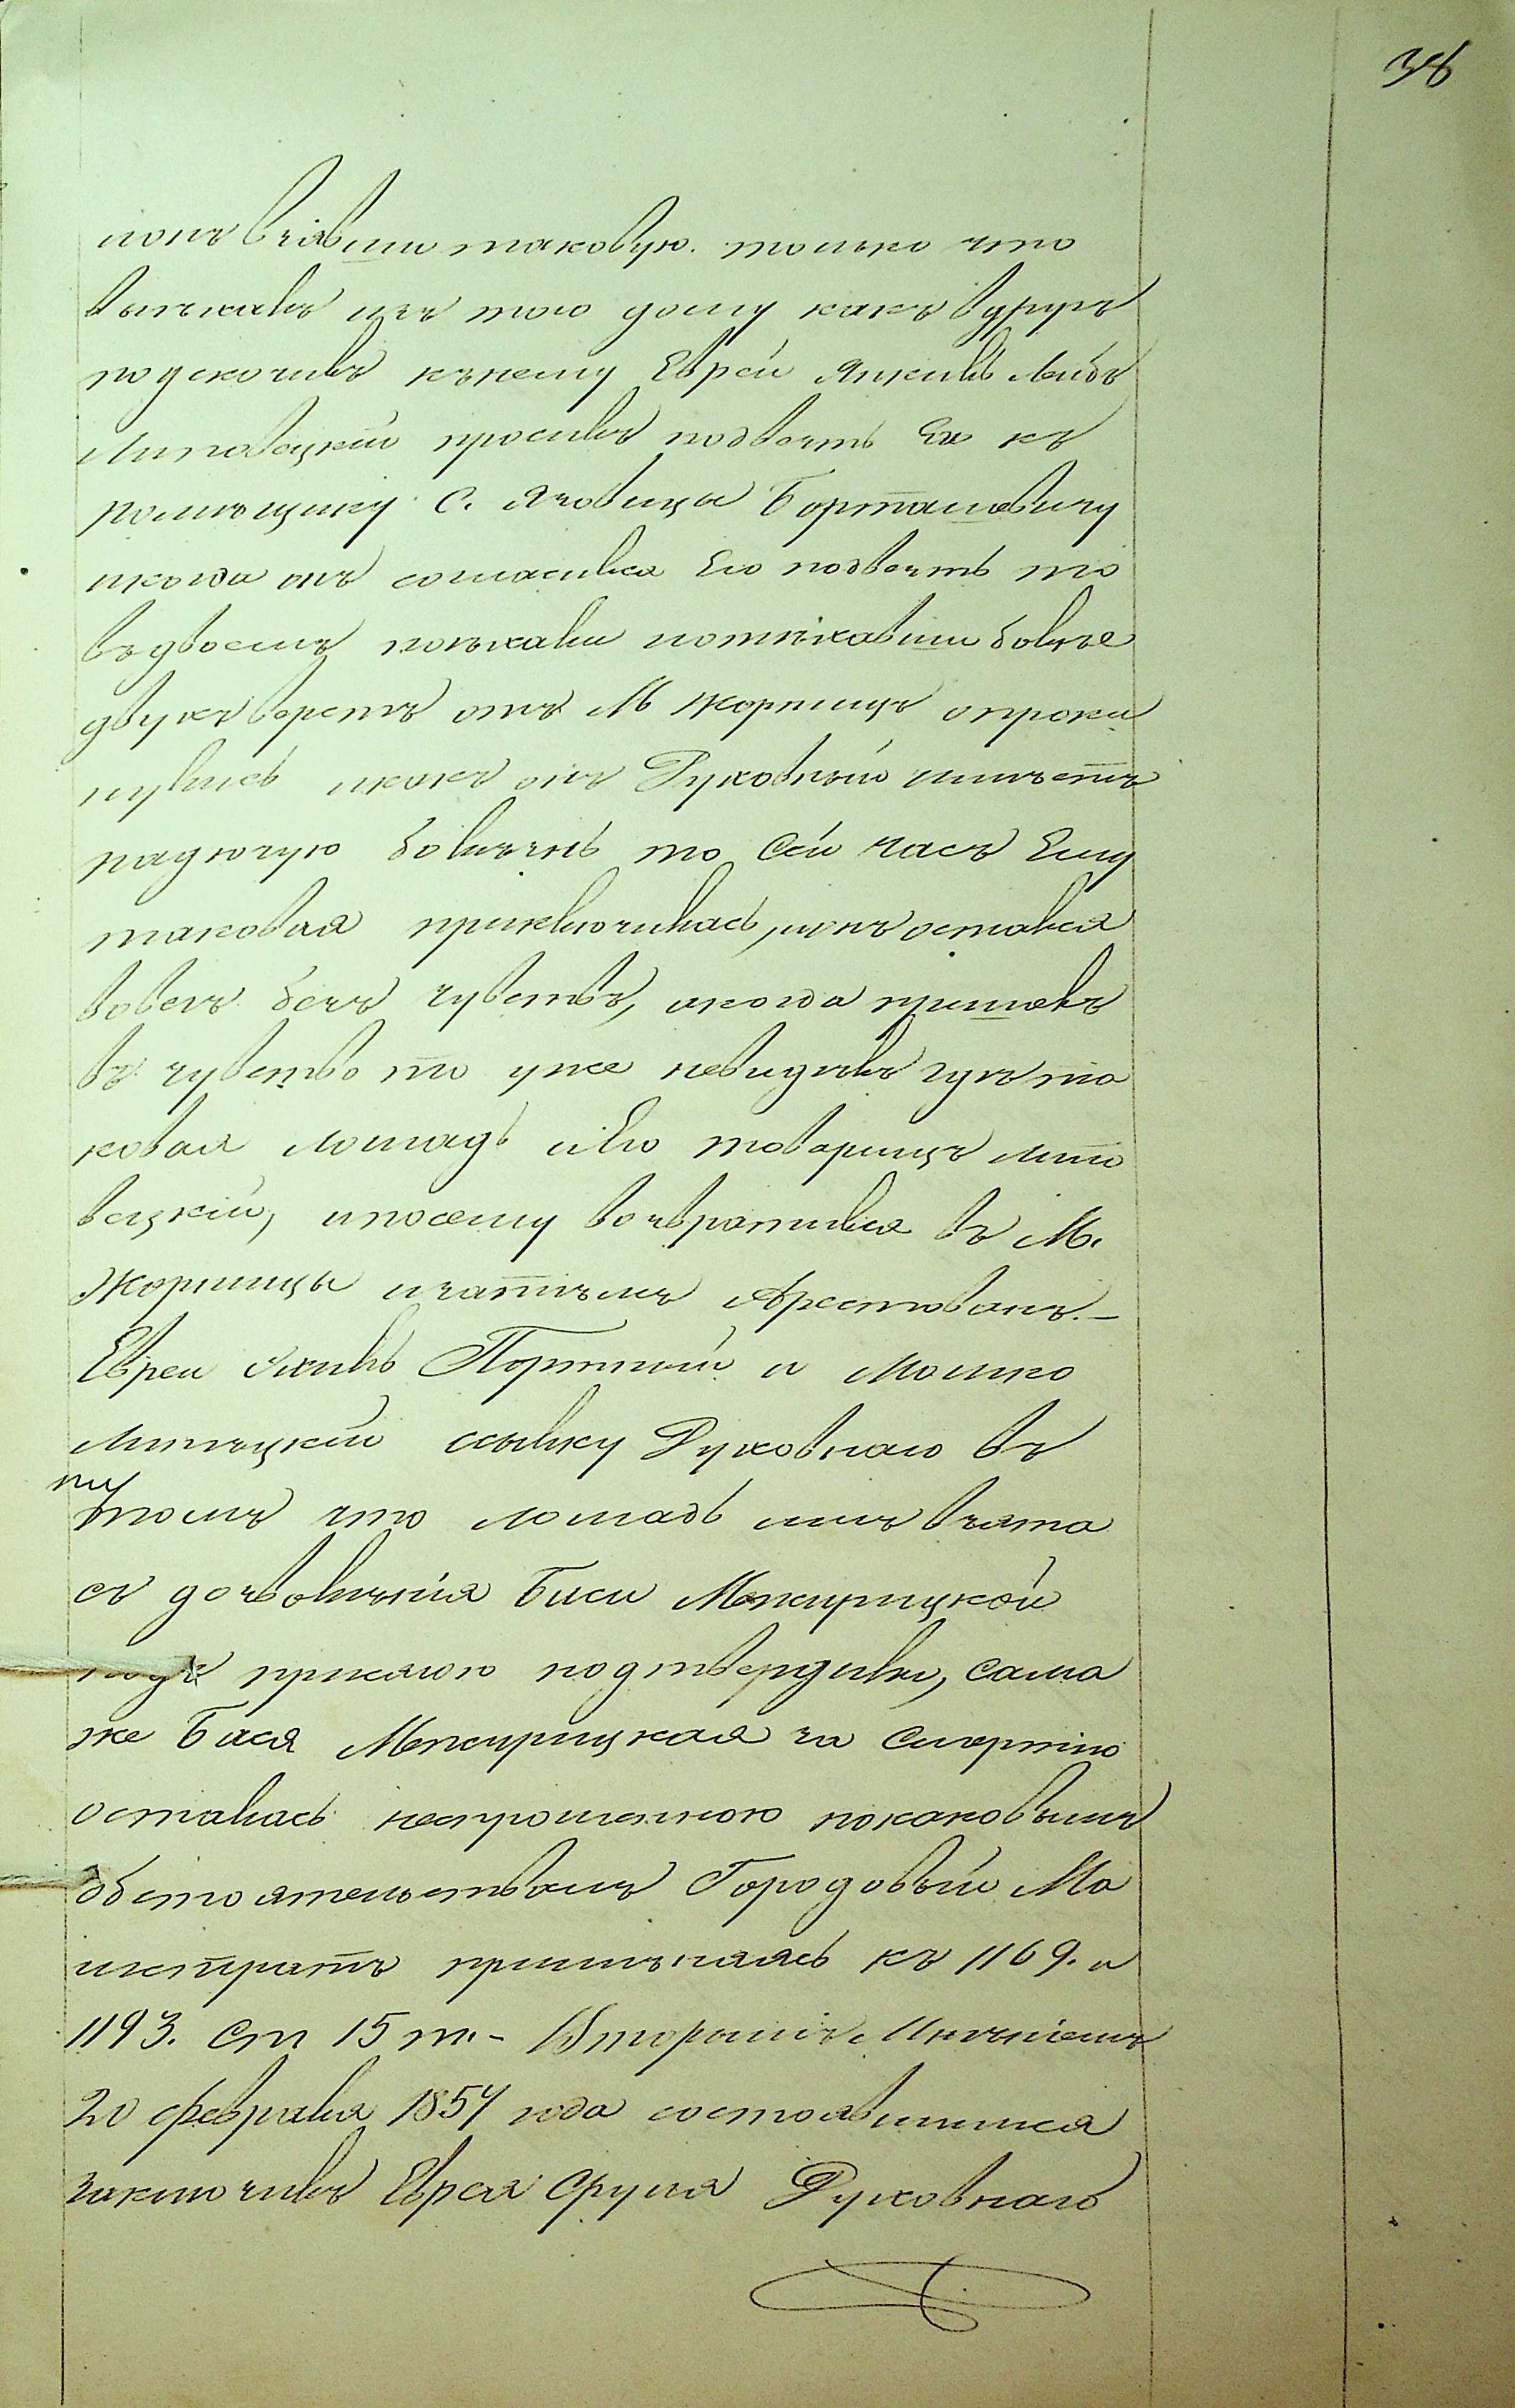 38
ионъ взявши таковую. только что
выехалъ изъ того дому какъ вдругъ
подскочилъ къ нему Еврей Янкель Лейбъ
Липовецкій просилъ подвезть Его къ
помѣщику С. Язовицы Борташевичу
икогда онъ согласился Его подвезть то
въдвоемъ поѣхали иотъѣхавши болѣе
двухъ верстъ отъ М Жорнищъ опроки
нулись икакъ онъ Духовный имѣетъ
падючую болѣзнь то Сей часъ Ему
таковая приключилась, ионъ остался
вовсе безъ чувствъ, икогда пришолъ
въ чувство то уже невидѣлъ гдѣ та
ковая лошадь иЕго товарищъ Липо
вецкій, ипосему возвратился въ М.
Жорнищы изатѣмъ Арестованъ. –
Евреи Хаимъ Портной и Мошко
Липецкій ссылку Духовнаго въ
томъ что лошадь имъ взята
съ дозволѣнія Баси Межирицкой
подъ присягою подтвердили, сама
же Бася Межирицкая за Смертію
осталась неспрошенною покаковымъ
обстоятельствамъ Городовый Ма
гистратъ примѣняясь къ 1169. и
1193. Ст 15 т. – Вторымъ Мнѣніемъ
20 февраля 1857 года состоявшимся
заключилъ Еврея Сруля Духовнаго